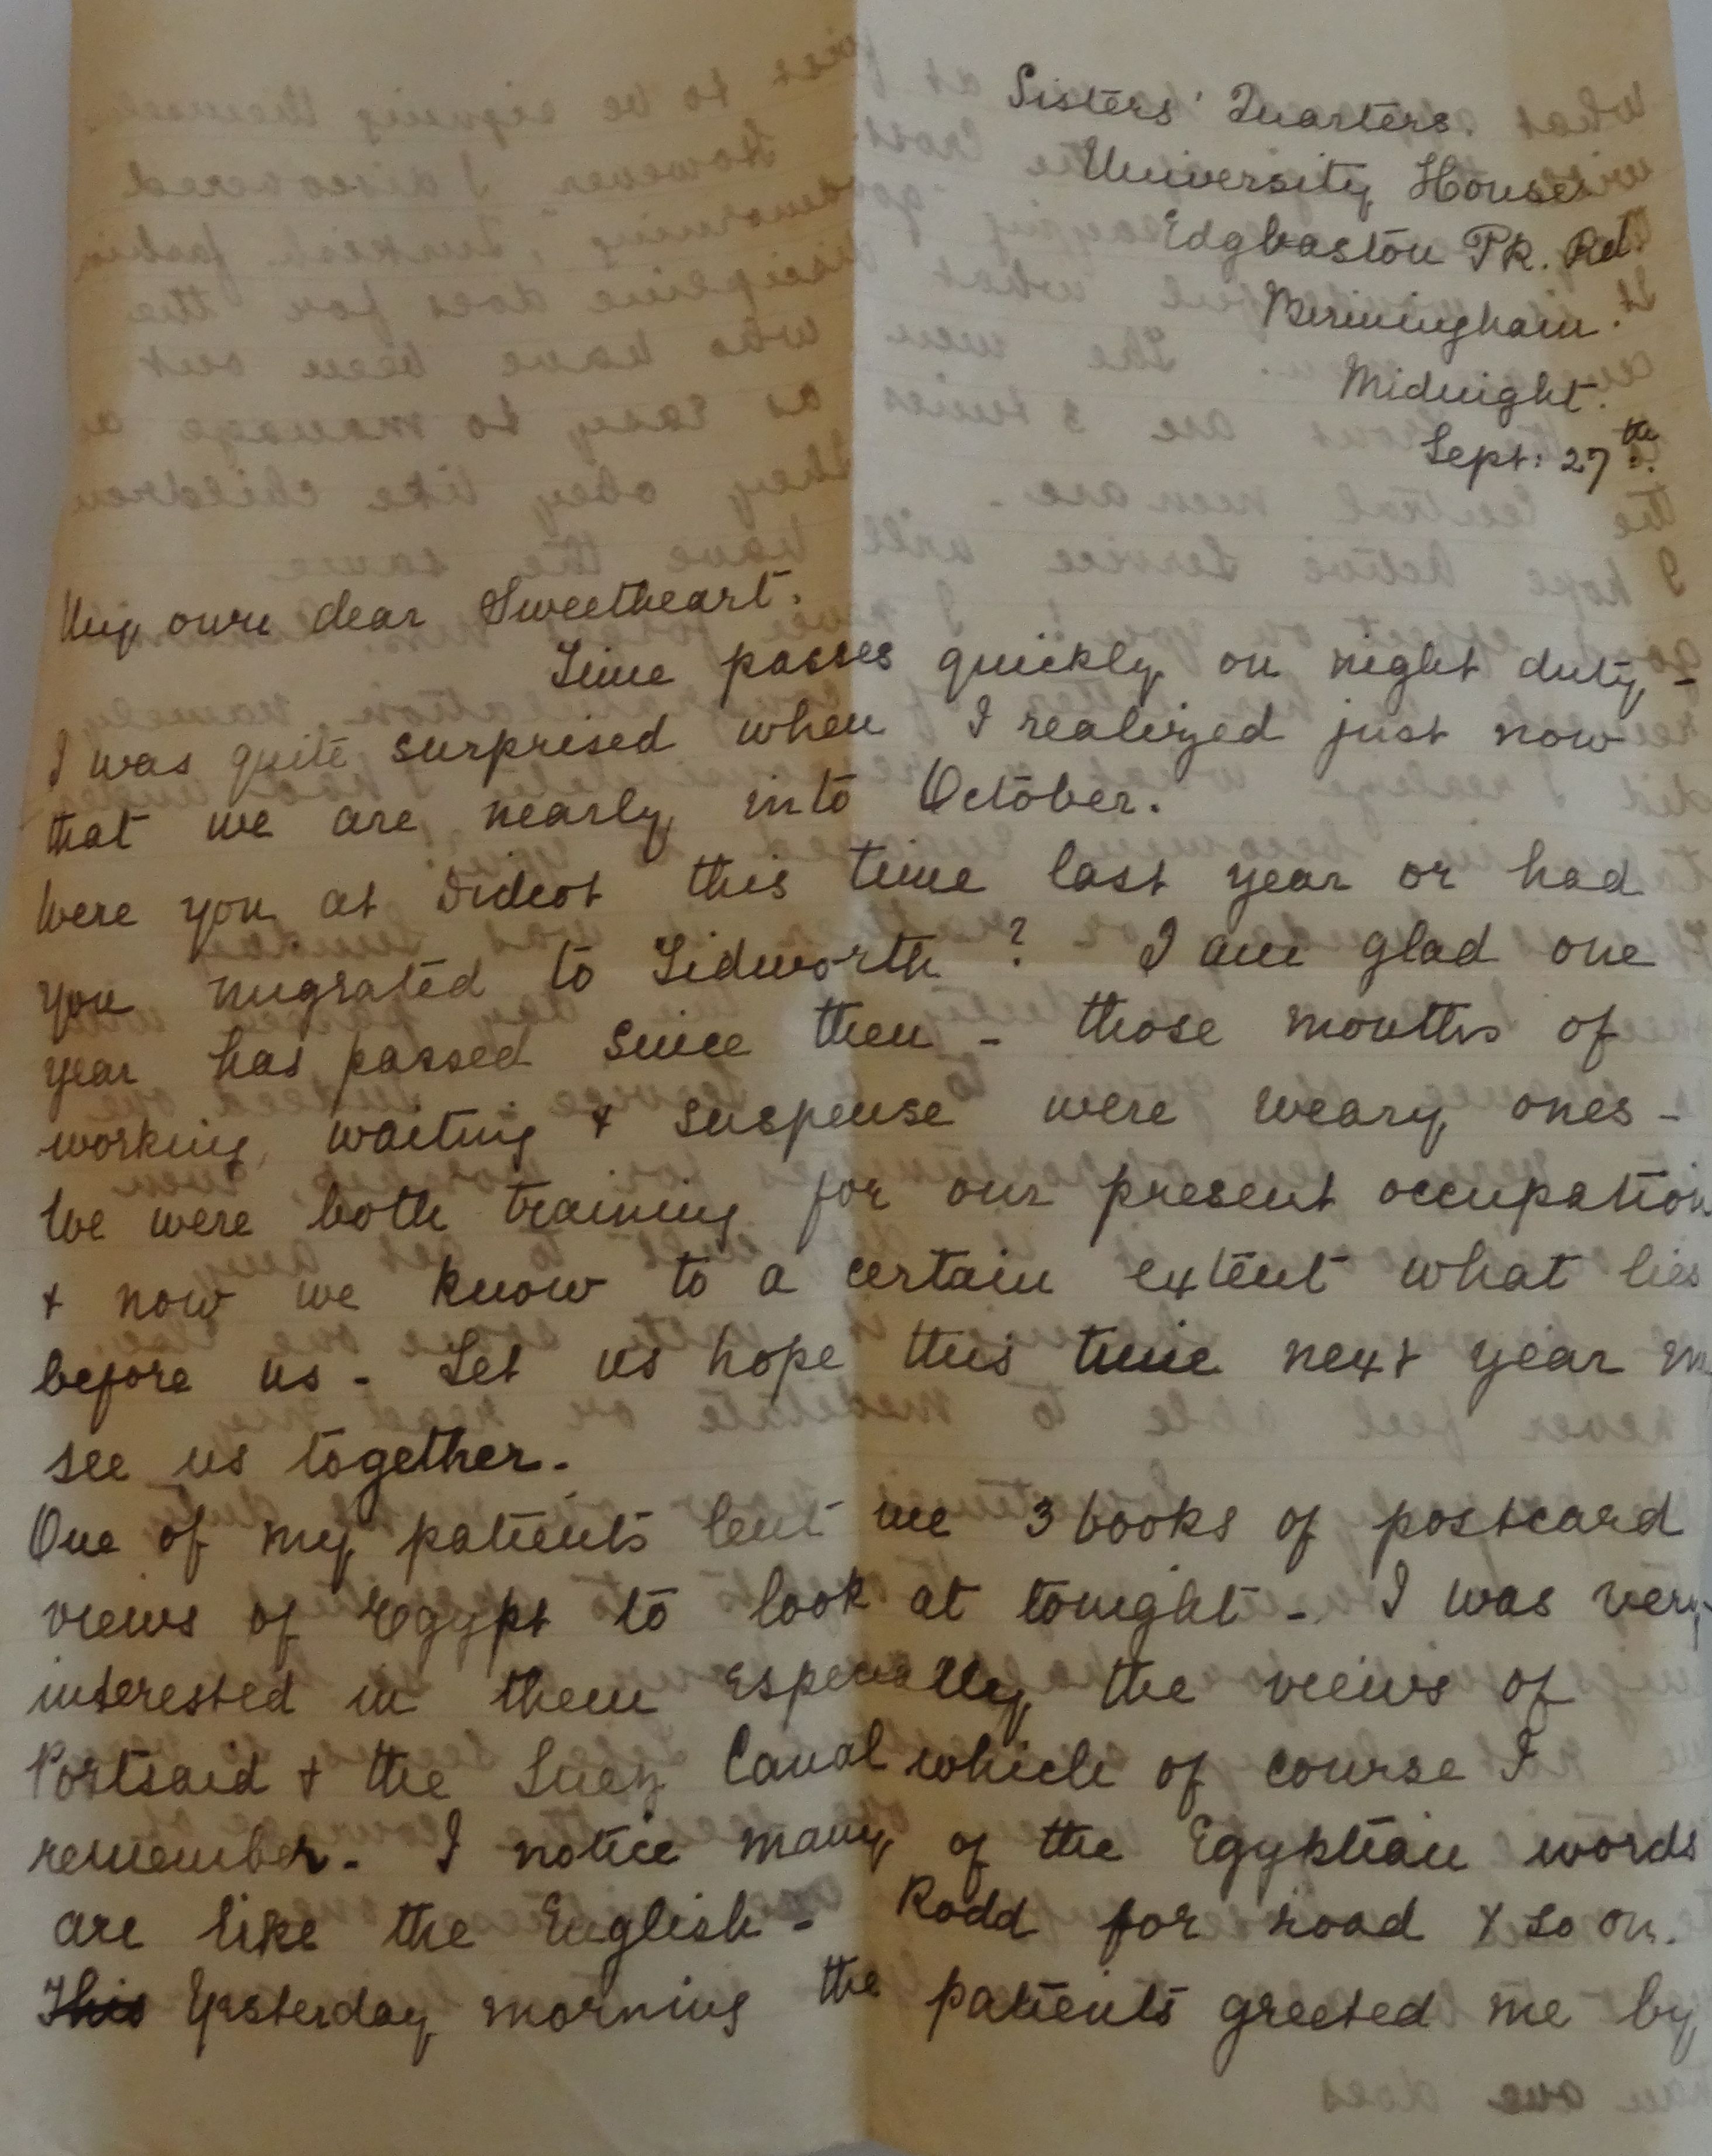 Sisters' Quarters.
University House
Edgbaston Pk. Rd.
Birmingham.
Midnight.
Sept: 27th.
My own dear Sweetheart.
Time passes quickly on night duty -
I was quite surprised when I realized just now
that we are nearly into October.
Were you at Didcot this time last year or had
you migrated to Tidworth? I am glad one
year has passed since then - those months of
working, waiting & suspense were weary ones -
We were both training for our present occupation
& now we know to a certain extent what lies
before us - Let us hope this time next year
see us together.
One of my patients lent me 3 books of postcard
views of Egypt to look at tonight - I was very
interested in them especially the views of
Portsaid & the Suez Canal which of course I
remember. I notice many of the Egyptian words
are like the English - Rodd for road & so on.
This Yesterday morning the patients greeted me by